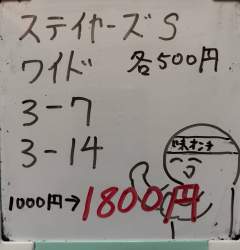 ステイヤーズS
ワイド 各500円
3-7
3-14
味オンチ
1000円→1800円